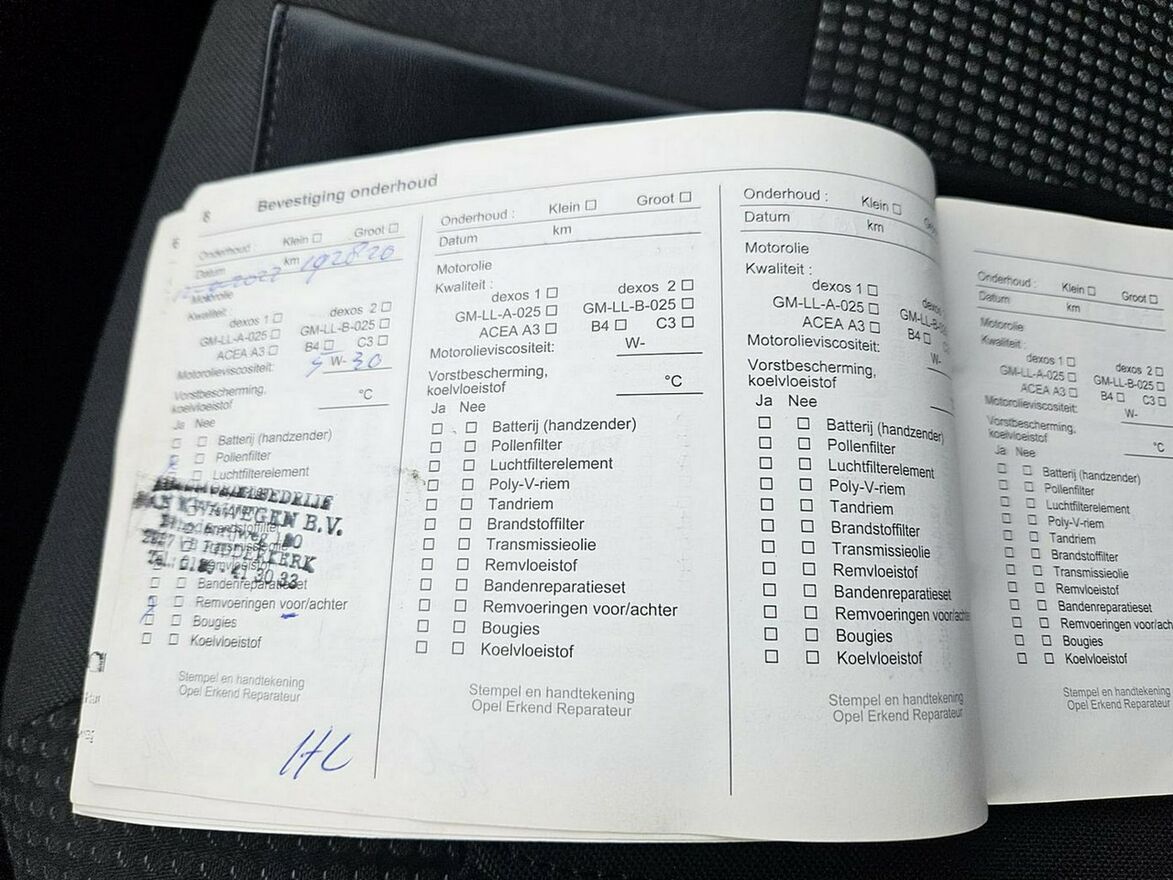 8 Bevestiging onderhoud
Onderhoud : Klein Groot
Datum km 192820
Motorolie
Kwaliteit :
dexos 1 dexos 2
GM-LL-A-025 GM-LL-B-025
ACEA A3 B4 C3
Motorolieviscositeit: 5 W- 30
Vorstbescherming,
koelvloeistof °C
Ja Nee
Batterij (handzender)
Pollenfilter
Luchtfilterelement
VAN WEGEN B.V.
RIDDERKERK
Bandenreparatieset
Remvoeringen voor/achter
Bougies
Koelvloeistof
Stempel en handtekening
Opel Erkend Reparateur
HL
Onderhoud : Klein Groot
Datum km
Motorolie
Kwaliteit :
dexos 1 dexos 2
GM-LL-A-025 GM-LL-B-025
ACEA A3 B4 C3
Motorolieviscositeit: W-
Vorstbescherming,
koelvloeistof °C
Ja Nee
Batterij (handzender)
Pollenfilter
Luchtfilterelement
Poly-V-riem
Tandriem
Brandstoffilter
Transmissieolie
Remvloeistof
Bandenreparatieset
Remvoeringen voor/achter
Bougies
Koelvloeistof
Stempel en handtekening
Opel Erkend Reparateur
Onderhoud : Klein
Datum km
Motorolie
Kwaliteit :
dexos 1 dexos
GM-LL-A-025 GM-LL-B-
ACEA A3 B4
Motorolieviscositeit: W-
Vorstbescherming,
koelvloeistof
Ja Nee
Batterij (handzender)
Pollenfilter
Luchtfilterelement
Poly-V-riem
Tandriem
Brandstoffilter
Transmissieolie
Remvloeistof
Bandenreparatieset
Remvoeringen voor/achter
Bougies
Koelvloeistof
Stempel en handtekening
Opel Erkend Reparateur
Onderhoud : Klein Groot
Datum km
Motorolie
Kwaliteit :
dexos 1 dexos 2
GM-LL-A-025 GM-LL-B-025
ACEA A3 B4 C3
Motorolieviscositeit: W-
Vorstbescherming,
koelvloeistof °C
Ja Nee
Batterij (handzender)
Pollenfilter
Luchtfilterelement
Poly-V-riem
Tandriem
Brandstoffilter
Transmissieolie
Remvloeistof
Bandenreparatieset
Remvoeringen voor/acht
Bougies
Koelvloeistof
Stempel en handtekening
Opel Erkend Reparateur